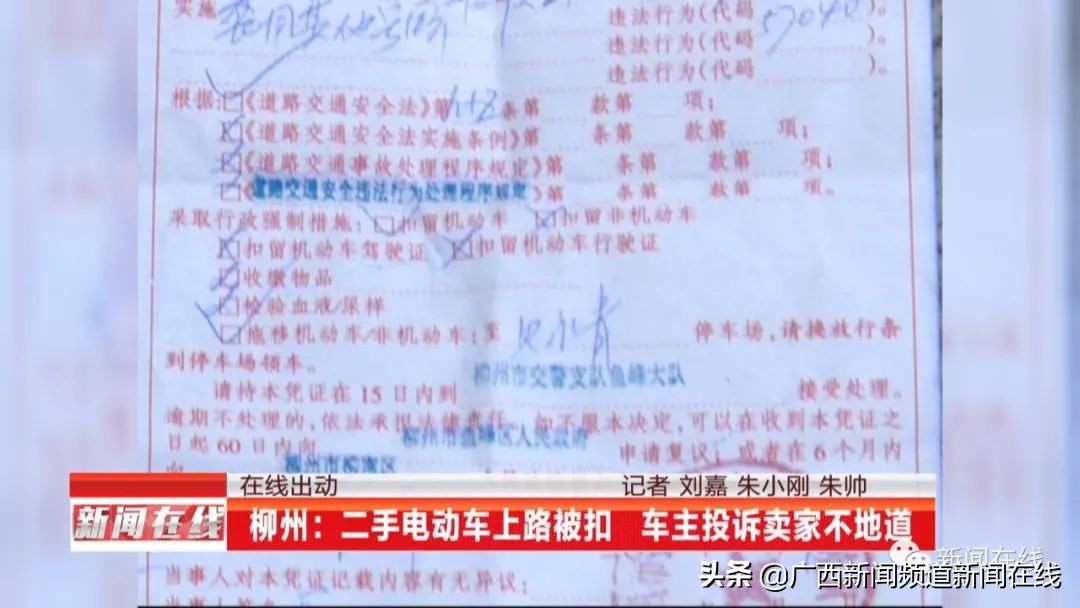 实施 套用其他号牌 违法行为(代码 57040 )。
违法行为(代码 )。
违法行为(代码 )。
根据:□《道路交通安全法》第 条第 款第 项;
□《道路交通安全法实施条例》第 条第 款第 项;
□《道路交通事故处理程序规定》第 条第 款第 项;
□《道路交通安全违法行为处理程序规定》第 条第 款第 项。
采取行政强制措施:□扣留机动车 □扣留非机动车
□扣留机动车驾驶证 □扣留机动车行驶证
□收缴物品
□检验血液/尿样
□拖移机动车/非机动车:至 停车场,请换放行条
到停车场领车。
请持本凭证在15日内到 柳州市交警支队鱼峰大队 接受处理。
逾期不处理的,依法承担法律责任。如不服本决定,可以在收到本凭证之
日起60日内向 柳州市鱼峰区人民政府 申请复议;或者在6个月内
向 柳州市柳南区
在线出动 记者 刘嘉 朱小刚 朱帅
新闻在线 柳州:二手电动车上路被扣 车主投诉卖家不地道
新闻在线
当事人对本凭证记载内容有无异议:
头条 @广西新闻频道新闻在线